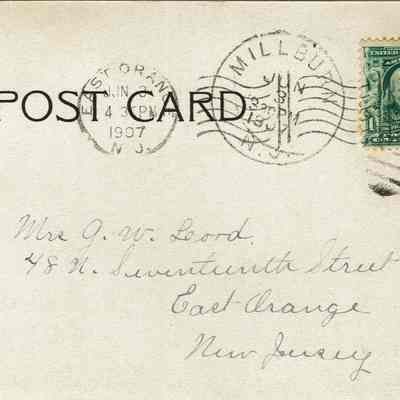 POST CARD
EAST ORANGE
JUN 3
4 3 PM
1907
N. J.
MILLBURN
JUN
3
N.J.
1
Mrs G. W. Leord.
48 N. Seventeenth Street
East Orange
New Jersey